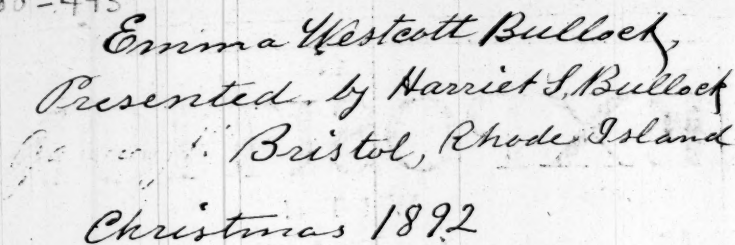 Emma Westcott Bullock,
Presented by Harriet S. Bullock
Bristol, Rhode Island
Christmas 1892